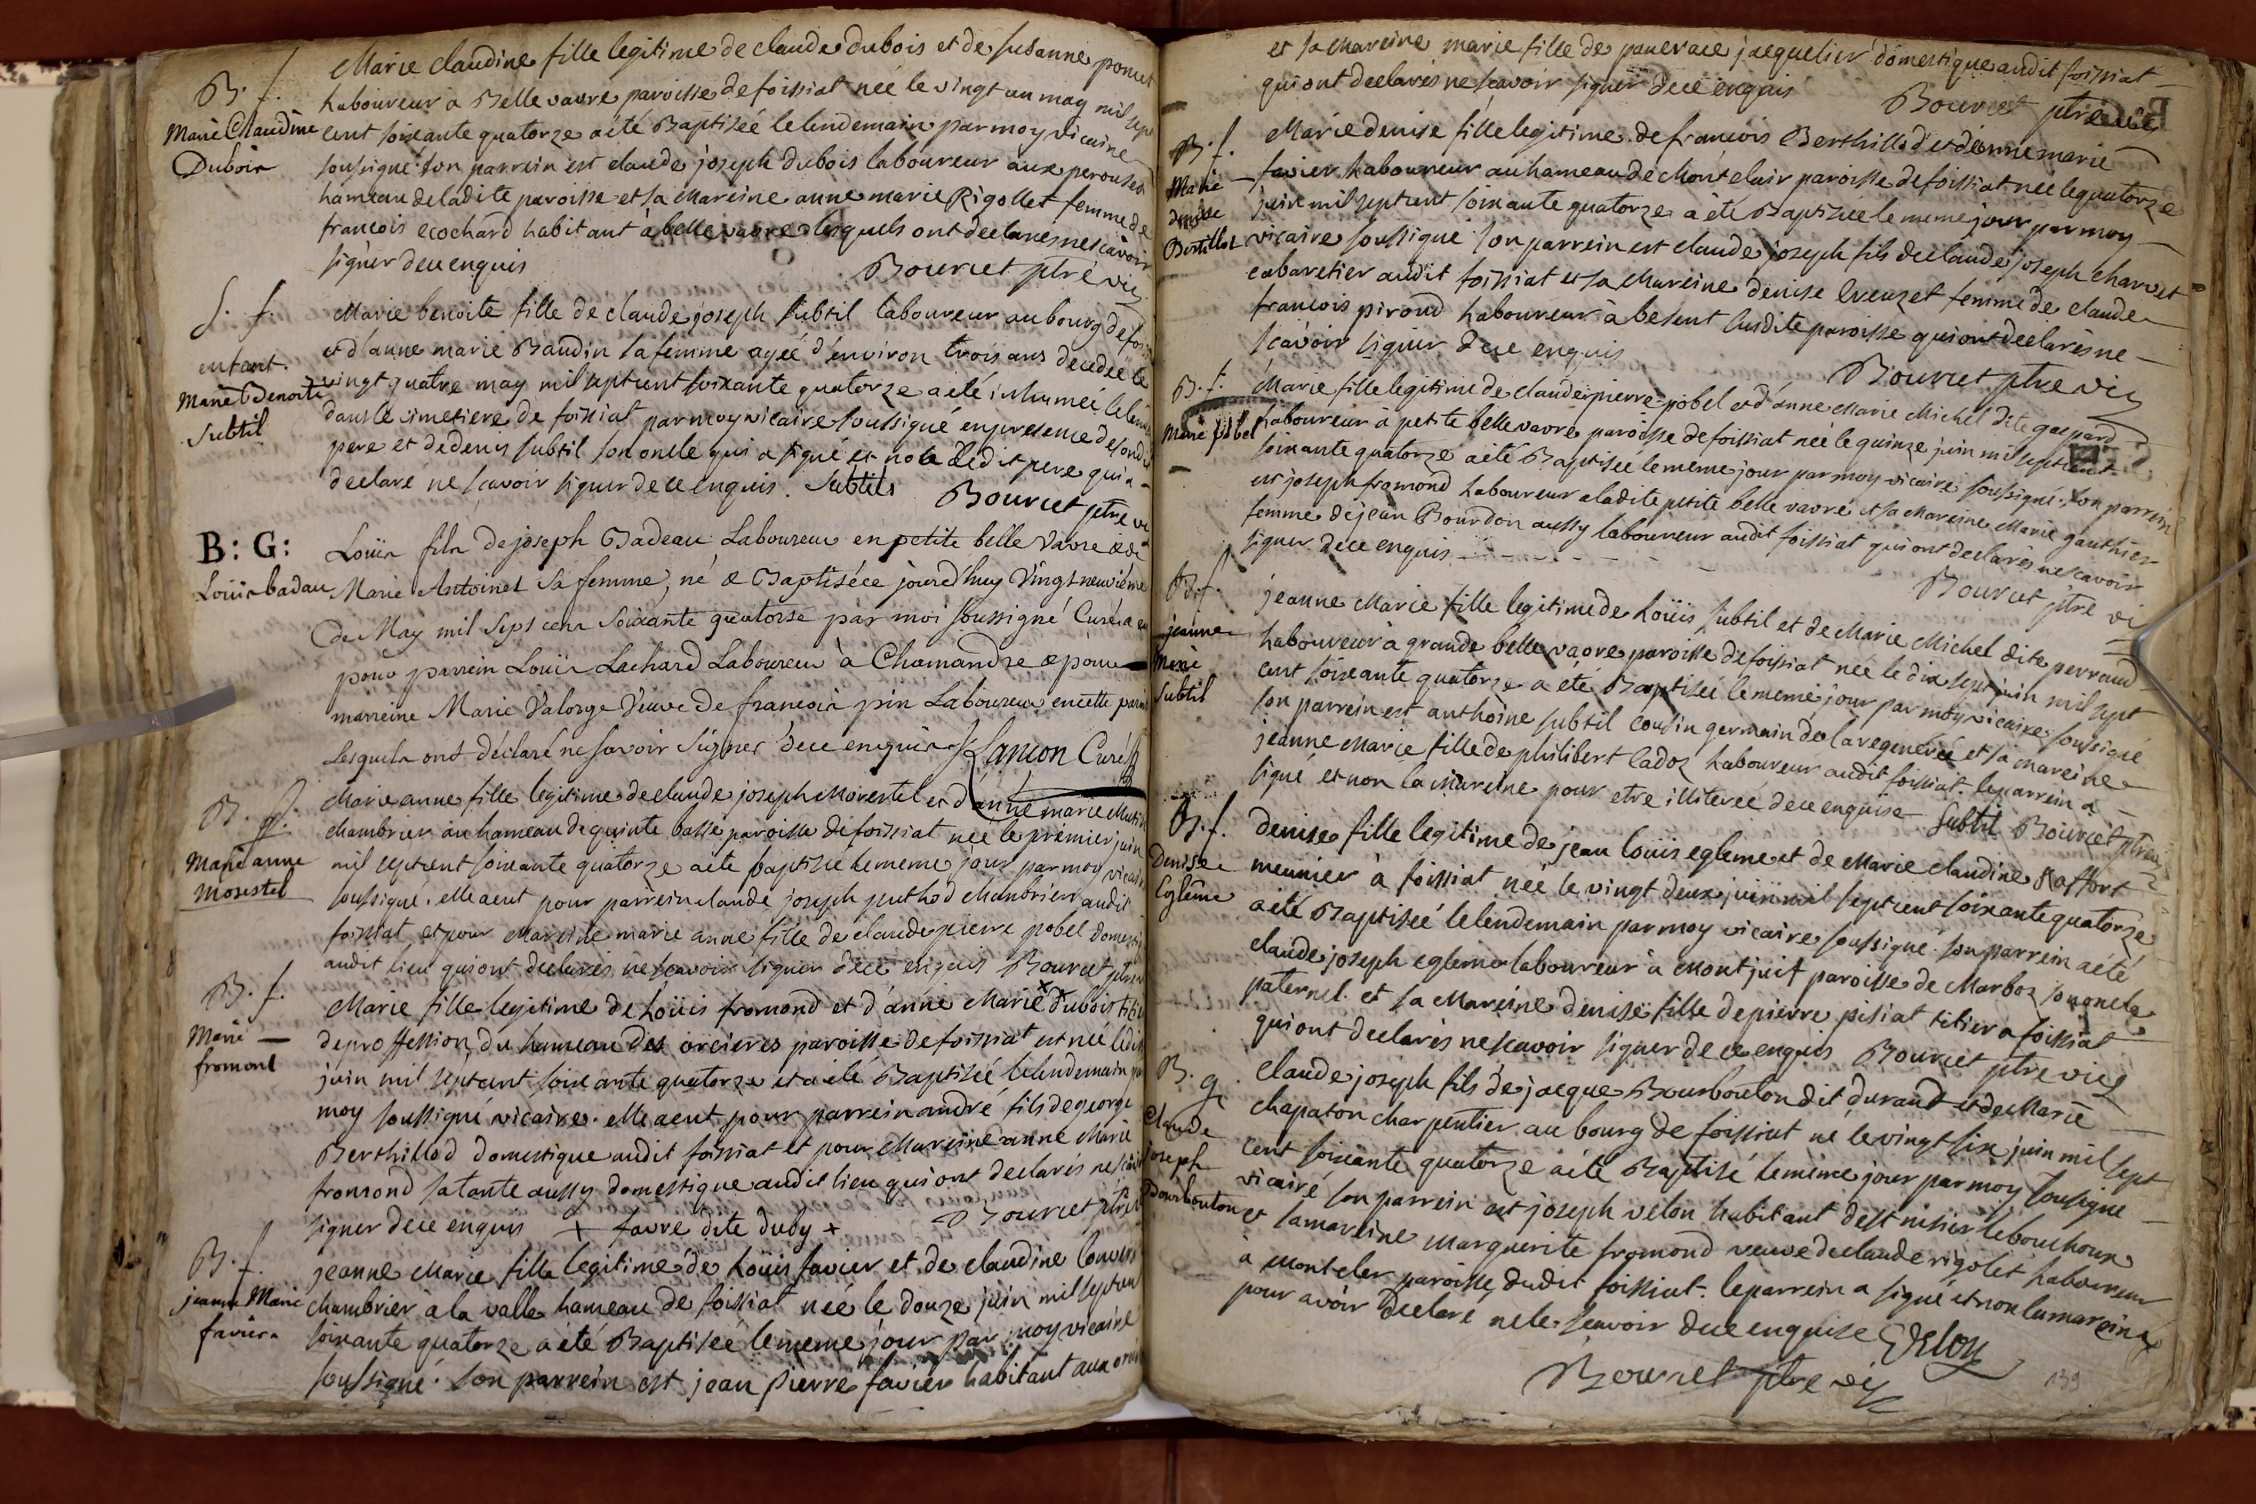 B. f.
Marie Claudine
Dubois
Marie Claudine fille legitime de claude dubois et de susanne poncet
laboureur a Bellevavre paroisse de foissiat née le vingt un may mil sept
cent soixante quatorze a été Baptisée le lendemain par moy vicaire
soussigné. son parrein est claude joseph dubois laboureur aux perouses
hameau de ladite paroisse et sa mareine anne marie Rigollet femme de
francois ecochard habitant à belle vavre lesquels ont declarés ne scavoir
signer de ce enquis Bourcet ptre vic
S. f.
enfant.
Marie Benoite
Subtil
Marie benoite fille de claude joseph subtil laboureur au bourg de foissiat
et d'anne marie Baudin sa femme agée d'environ trois ans decedée le
vingt quatre may mil sept cent soixante quatorze a été inhumée le lendemain
dans le cimetiere de foissiat par moy vicaire soussigné en presence de sondit
pere et de denis subtil son oncle qui a signé et non ledit pere qui a
declaré ne scavoir signer de ce enquis. Subtil Bourcet ptre vi
B: G:
Louis badau
Louis fils de joseph Badeau Laboureur en petite belle Vavre & de
Marie Antoinet Sa femme, né & Baptisé ce jourd'huy Vingt neuvième
de May mil Sept cent Soixante quatorse par moi soussigné Curé a eu
pour parrein Louis Lachard Laboureur à Chamandre & pour
marreine Marie Valorge Veuve de francois pin Laboureur en cette paroisse
Lesquels ont déclaré ne savoir Signer de ce enquis Lancon Curé
B. f.
Marie anne
Morestel
Marie anne fille legitime de claude joseph Morestel et d'anne marie
chambrier au hameau de quinte basse paroisse de foissiat née le premier juin
mil sept cent soixante quatorze a été baptisée le meme jour par moy vicaire
soussigné. elle a eut pour parrein claude joseph puthod chambrier audit
foissiat et pour Mareine marie anne fille de claude pierre pobel domestique
audit lieu qui ont declarés ne scavoir signer de ce enquis Bourcet ptre
B. f.
Marie
fromont
Marie fille legitime de Louis fromond et d'anne Marie x dubois titier
de proffession du hameau des orcieres paroisse de foissiat est née le dix
juin mil sept cent soixante quatorze et a été Baptisée le lendemain par
moy soussigné vicaire. elle a eut pour parrein andré fils de george
Berthillod domestique audit foissiat et pour Mareine anne Marie
fromond sa tante aussy domestique audit lieu qui ont declarés ne scavoir
signer de ce enquis + favre dite duby + Bourcet ptre
B. f.
jeanne Marie
favier
jeanne Marie fille legitime de Louis favier et de claudine
chambrier a la valla hameau de foissiat née le douze juin mil sept cent
soixante quatorze a été Baptisée le meme jour par moy vicaire
soussigné. son parrein est jean pierre favier habitant aux
et sa Mareine marie fille de pancrace jacquelier domestique audit foissiat
qui ont declarés ne scavoir signer de ce enquis Bourcet ptre vic
B. f.
Marie
denise
Bertillot
Marie denise fille legitime de francois Berthillod et d'anne marie
favier laboureur au hameau de Montclair paroisse de foissiat née le quatorze
juin mil sept cent soixante quatorze a été Baptisée le meme jour par moy
vicaire soussigné son parrein est claude joseph fils de claude joseph charvet
cabaretier audit foissiat et sa Mareine denise femme de claude
francois pirond laboureur à besent susdite paroisse qui ont declarés ne
scavoir signer de ce enquis Bourcet ptre vic
B. f.
Marie pobel
Marie fille legitime de claude pierre pobel et d'anne Marie Michel dite gaspard
laboureur à petite belle vavre paroisse de foissiat née le quinze juin mil sept cent
soixante quatorze a été Baptisée le meme jour par moy vicaire soussigné. son parrein
est joseph fromond laboureur a ladite petite belle vavre et sa Mareine Marie gauthier
femme de jean Bourdon aussy laboureur audit foissiat qui ont declarés ne scavoir
signer de ce enquis Bourcet ptre vi
B. f.
jeanne
Marie
Subtil
jeanne Marie fille legitime de Louis subtil et de Marie Michel dite perraud
laboureur à grande belle vavre paroisse de foissiat née le dix sept juin mil sept
cent soixante quatorze a été Baptisée le meme jour par moy vicaire soussigné
son parrein est anthoine subtil cousin germain de la regenerée et sa mareine
jeanne Marie fille de philibert cadoz laboureur audit foissiat. le parrein a
signé et non la mareine pour etre illiterée de ce enquise Subtil Bourcet ptre vic
B. f.
Denise
Eglême
denise fille legitime de jean louis egleme et de Marie claudine Raffort
meunier à foissiat née le vingt deux juin mil sept cent soixante quatorze
a été Baptisée le lendemain par moy vicaire soussigné. son parrein a été
claude joseph egleme laboureur à Montjuif paroisse de Marboz son oncle
paternel. et sa Mareine denise fille de pierre pisiat titier a foissiat
qui ont declarés ne scavoir signer de ce enquis Bourcet ptre vic
B. g.
Claude
joseph
Bourbouton
claude joseph fils de jacque Bourbouton dit durand et de Marie
chapaton charpentier au bourg de foissiat né le vingt six juin mil sept
cent soixante quatorze a été Baptisé le meme jour par moy soussigné
vicaire son parrein est joseph velon habitant de st nisier le bouchoux
et sa mareine marguerite fromond veuve de claude rigolet laboureur
à montcler paroisse dudit foissiat. le parrein a signé et non la mareine
pour avoir declaré ne le scavoir de ce enquise
Bourcet ptre vic
139